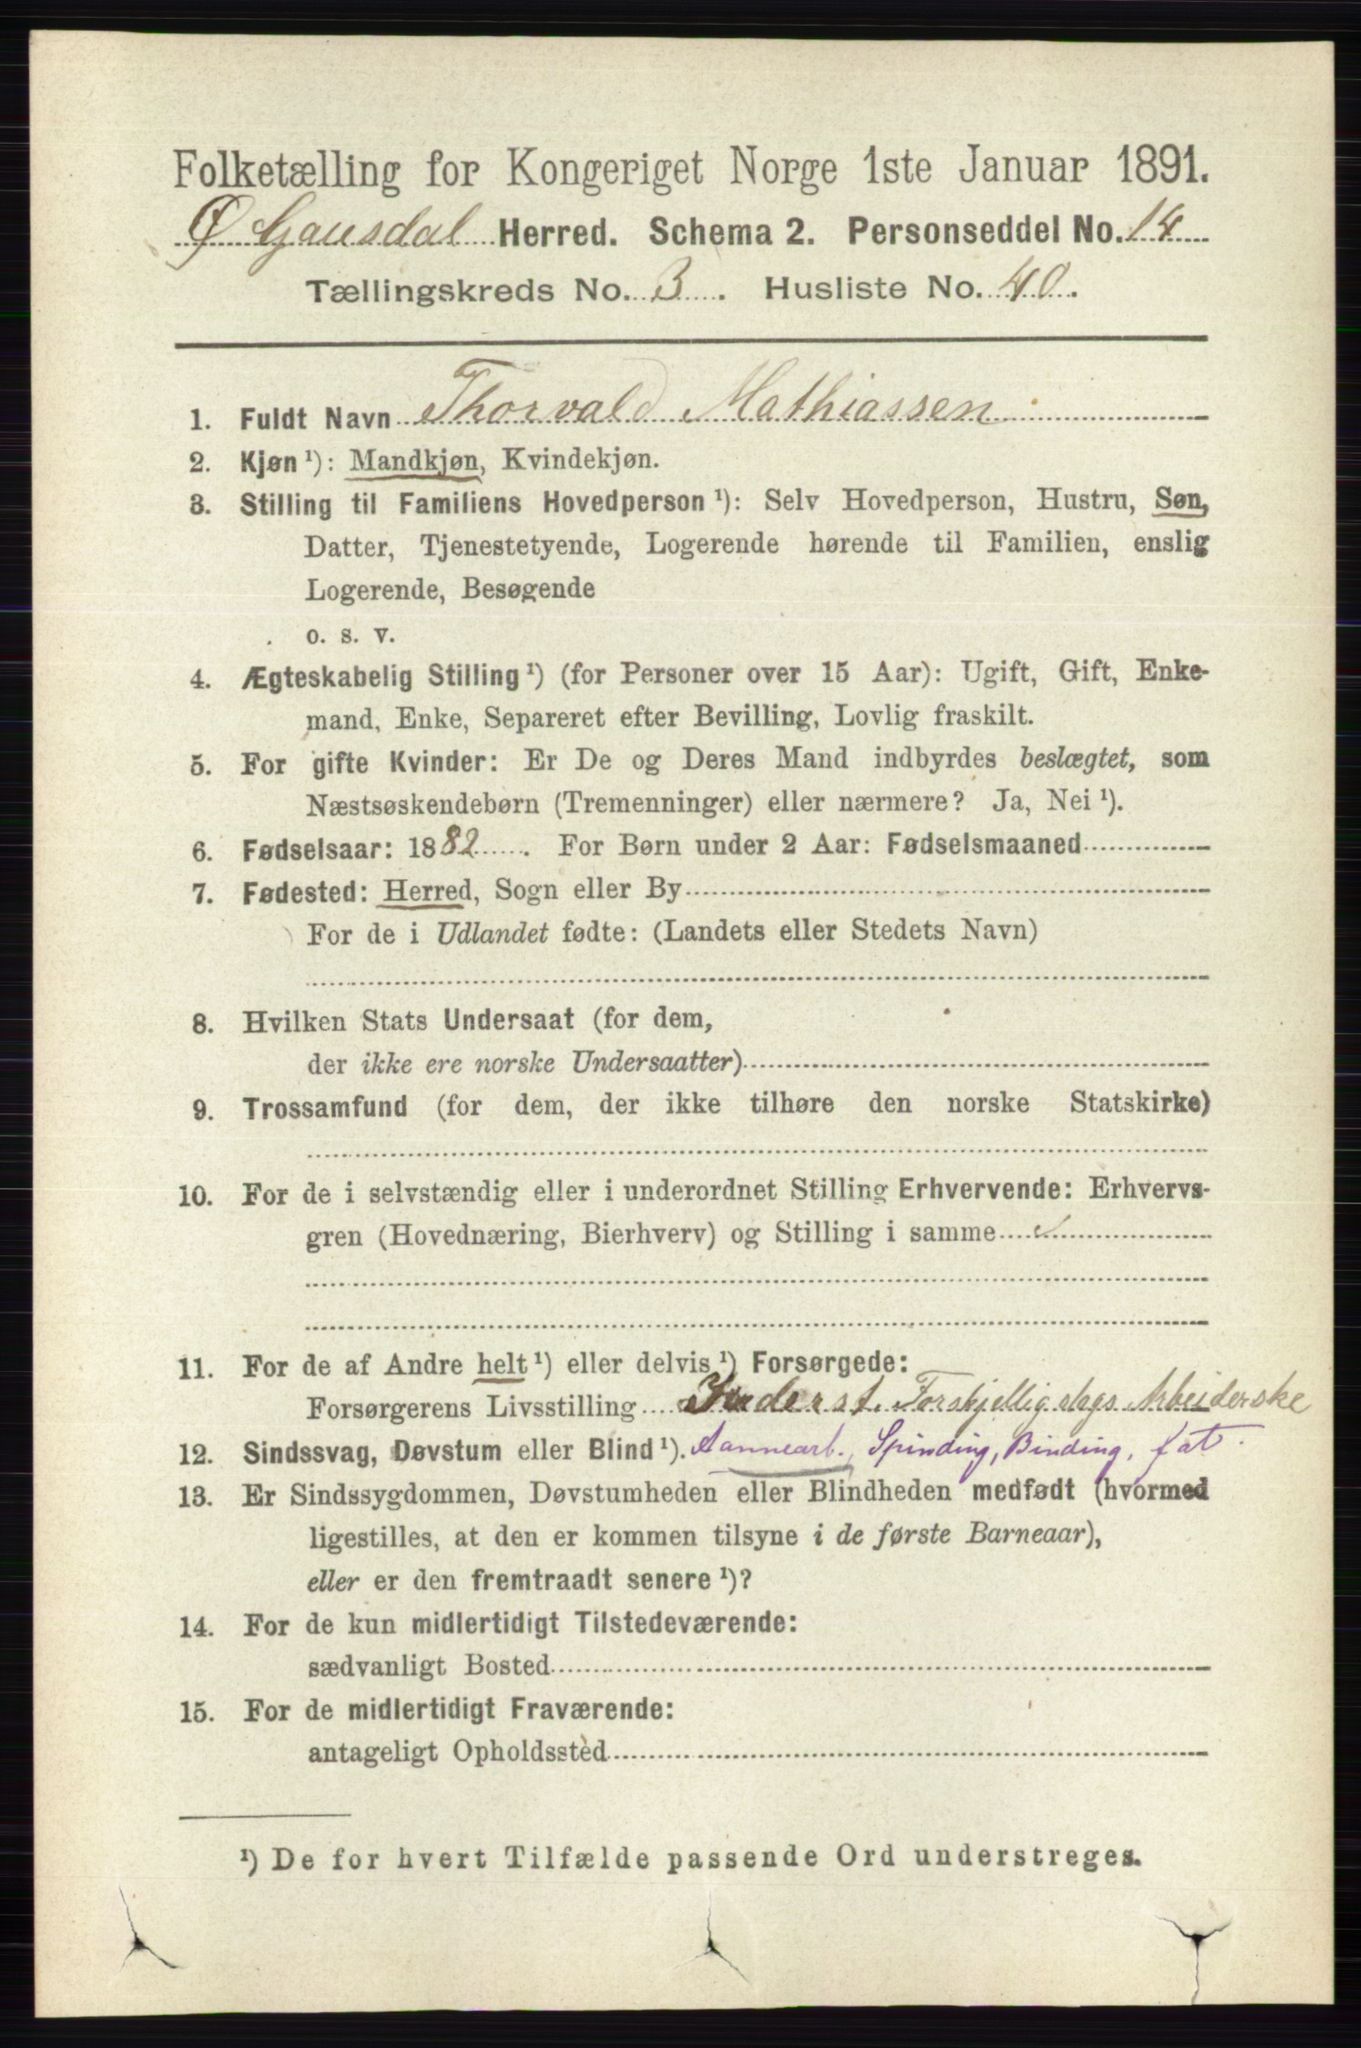 Folketælling for Kongeriget Norge 1ste Januar 1891.
Ø. Gausdal Herred. Schema 2. Personseddel No. 14
Tællingskreds No. 3. Husliste No. 40.
1. Fuldt Navn Thorvald Mathiassen
2. Kjøn ¹): Mandkjøn, Kvindekjøn.
3. Stilling til Familiens Hovedperson ¹): Selv Hovedperson, Hustru, Søn,
Datter, Tjenestetyende, Logerende hørende til Familien, enslig
Logerende, Besøgende
o. s. v.
4. Ægteskabelig Stilling ¹) (for Personer over 15 Aar): Ugift, Gift, Enke-
mand, Enke, Separeret efter Bevilling, Lovlig fraskilt.
5. For gifte Kvinder: Er De og Deres Mand indbyrdes beslægtet, som
Næstsøskendebørn (Tremenninger) eller nærmere? Ja, Nei ¹).
6. Fødselsaar: 1882. For Børn under 2 Aar: Fødselsmaaned
7. Fødested: Herred, Sogn eller By
For de i Udlandet fødte: (Landets eller Stedets Navn)
8. Hvilken Stats Undersaat (for dem,
der ikke ere norske Undersaatter)
9. Trossamfund (for dem, der ikke tilhøre den norske Statskirke)
10. For de i selvstændig eller i underordnet Stilling Erhvervende: Erhvervs-
gren (Hovednæring, Bierhverv) og Stilling i samme
11. For de af Andre helt ¹) eller delvis ¹) Forsørgede:
Forsørgerens Livsstilling Inderst. Forskjellig slags Arbeiderske
12. Sindssvag, Døvstum eller Blind ¹). Aannearb., Spinding, Binding, fat.
13. Er Sindssygdommen, Døvstumheden eller Blindheden medfødt (hvormed
ligestilles, at den er kommen tilsyne i de første Barneaar),
eller er den fremtraadt senere ¹)?
14. For de kun midlertidigt Tilstedeværende:
sædvanligt Bosted
15. For de midlertidigt Fraværende:
antageligt Opholdssted
¹) De for hvert Tilfælde passende Ord understreges.